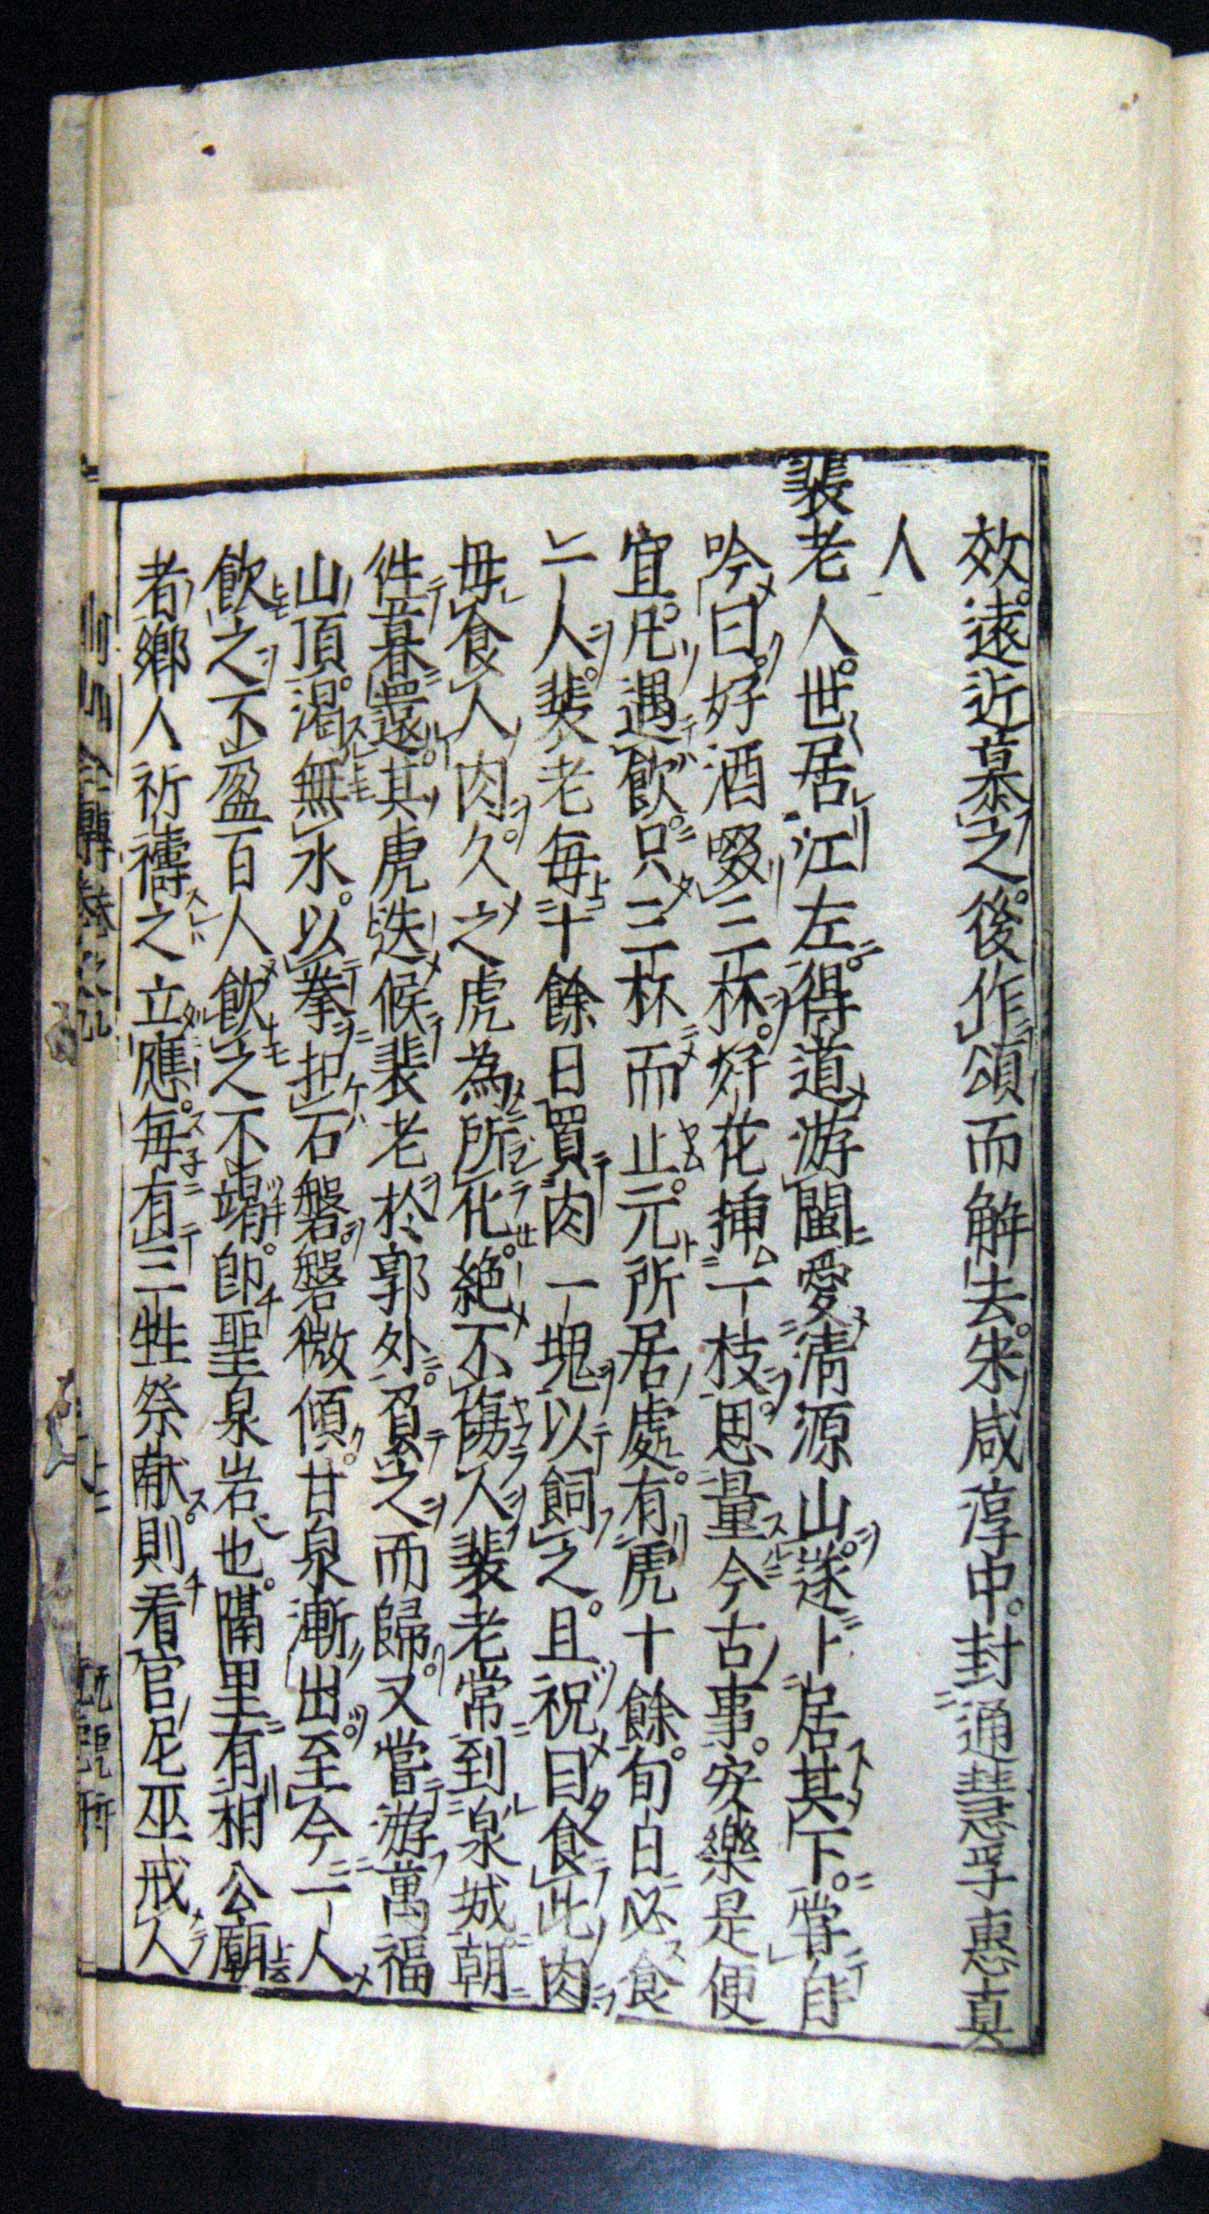 效遠近慕之後作頌而解去宋咸淳中封通慧孚惠真
人
裴老人世居江左得道游閩愛淸源山遂卜居其下嘗自
吟曰好酒啜三杯好花揷一枝思量今古事安樂是便
宜凡遇飮只三杯而止元所居處有虎十餘旬日必食
一人裴老每十餘日買肉一塊以飼之且祝曰食此肉
毋食人肉久之虎為所化絶不傷人裴老常到泉城朝
徃暮還其虎迭候裴老於郭外負之而歸又嘗游萬福
山頂渴無水以拳扣石磐磐微傾甘泉漸出至今一人
飮之不盈百人飮之不竭卽聖泉岩也隔里有相公廟
者鄉人祈禱之立應每有三牲祭献則看官尼巫戒人